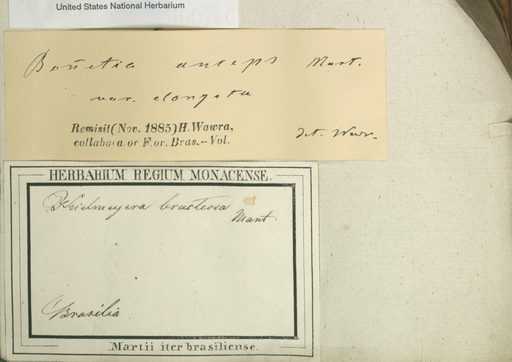 United States National Herbarium
Bonnetia anceps Mart.
var. elongata
Remisit (Nov. 1885) H. Wawra,
collabora or F or. Bras.-Vol.
det. Wawr.
HERBARIUM REGIUM MONACENSE.
Kielmeyera bracteosa
Mart.
Brasilia
Martii iter brasiliense.